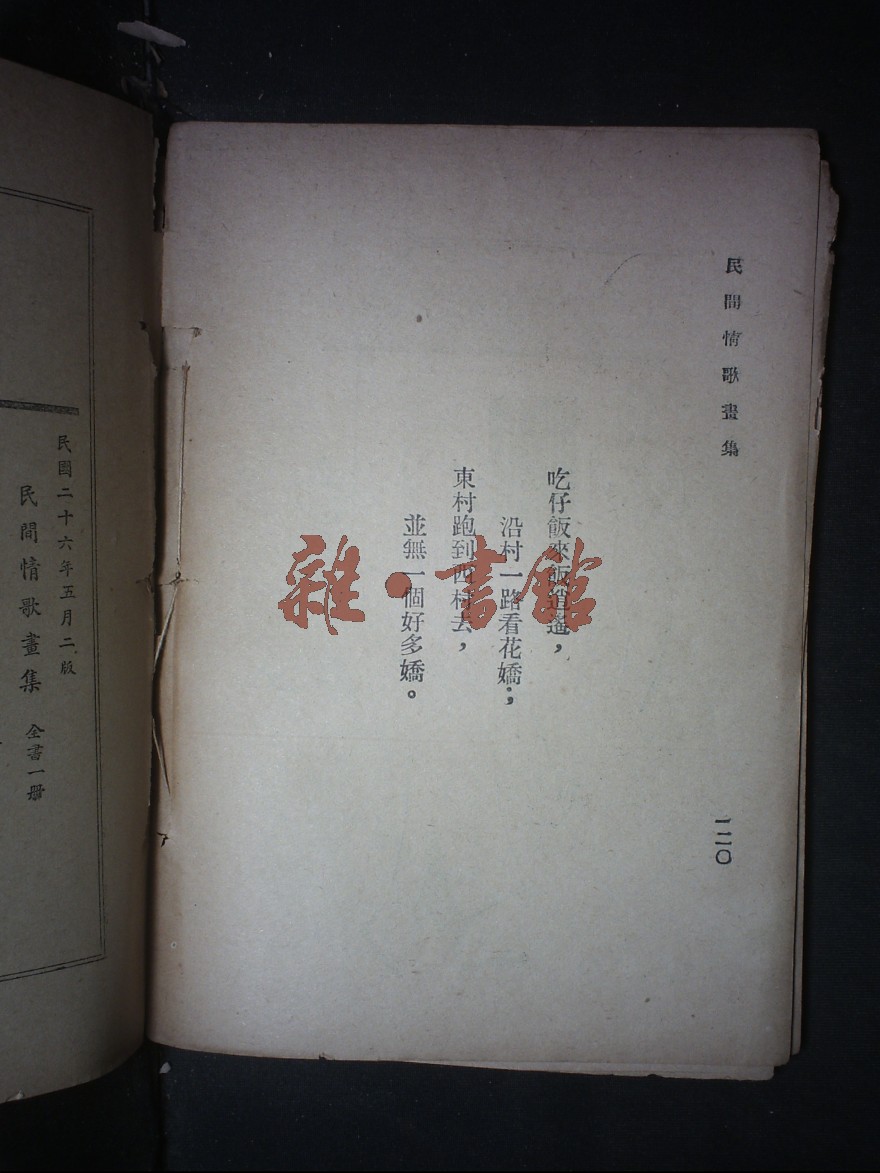 民間情歌畫集
吃仔飯來飯逍遙，
沿村一路看花嬌；
東村跑到西村去，
並無一個好多嬌。
一二〇
雜·書館
民國二十六年五月二版
民間情歌畫集 全書一册